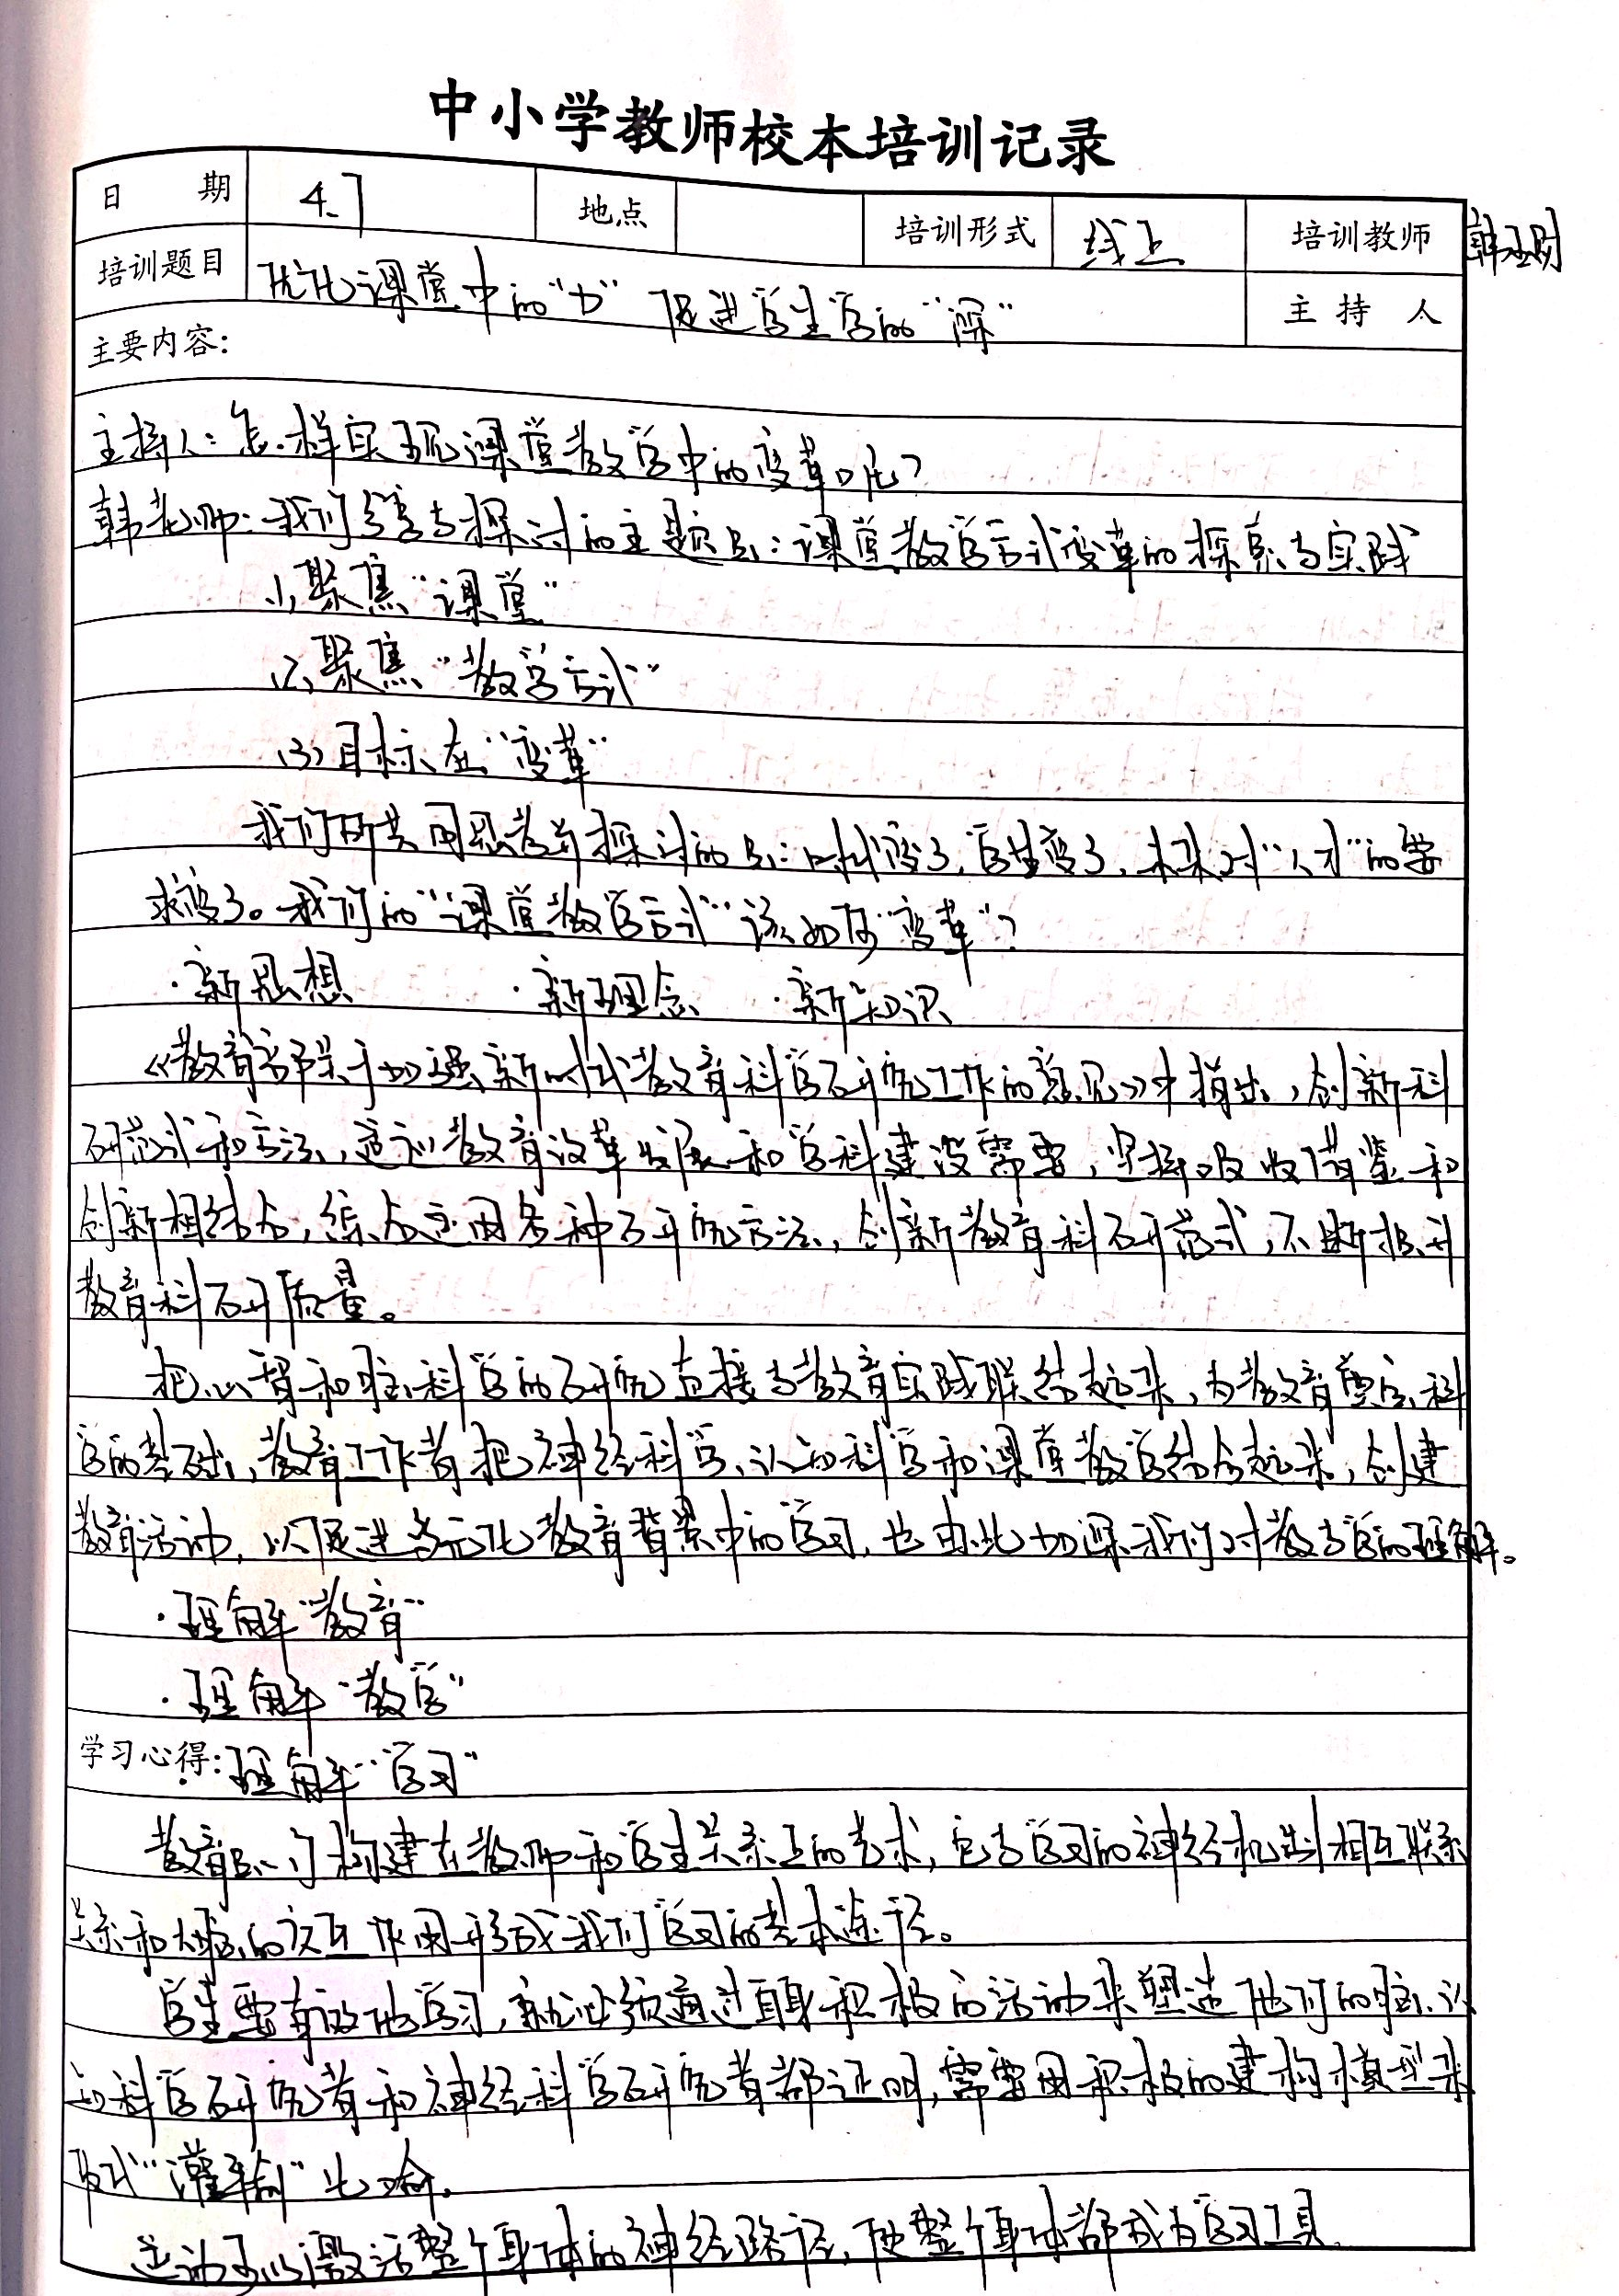 中小学教师校本培训记录
日 期 4.7 地点 培训形式 线上 培训教师 韩
培训题目 优化课堂中的“力” 促进学生学的“深” 主持人
主要内容:
主持人:怎样实现课堂教学中的变革呢?
韩老师:我们学者与探讨的主题是:课堂教学方式变革的探索与实践
(1)聚焦“课堂”
(2)聚焦“教学方式”
(3)目标在“变革”
我们所共同思考并探讨的是:时代变了,学生变了,未来对“人才”的需
求变了。我们的“课堂教学方式”该如何“变革”?
·新思想 ·新理念 ·新知识
《教育部关于加强新时代教育科学研究工作的意见》中指出,创新科
研范式和方法,适应教育改革发展和学科建设需要,坚持吸收借鉴和
创新相结合,综合运用各种研究方法,创新教育科研范式,不断提升
教育科研质量。
把心智和脑科学的研究直接与教育实践联结起来,为教育奠定科
学的基础,教育工作者把神经科学、认知科学和课堂教学结合起来,创建
教育活动,以促进多元化教育背景中的学习,也由此加深我们对教与学的理解。
·理解“教育”
·理解“教学”
学习心得:·理解“学习”
教育是一门构建在教师和学生关系上的艺术,它与学习的神经机制相互联系
关系和大脑的交互作用形成我们学习的基本途径。
学生要有效地学习,就必须通过自身积极的活动来塑造他们的脑,认
知科学研究者和神经科学研究者都证明,需要用积极的建构模型来
取代“灌输制”比喻。
运动可以激活整个身体的神经路径,使整个身体都成为学习工具.